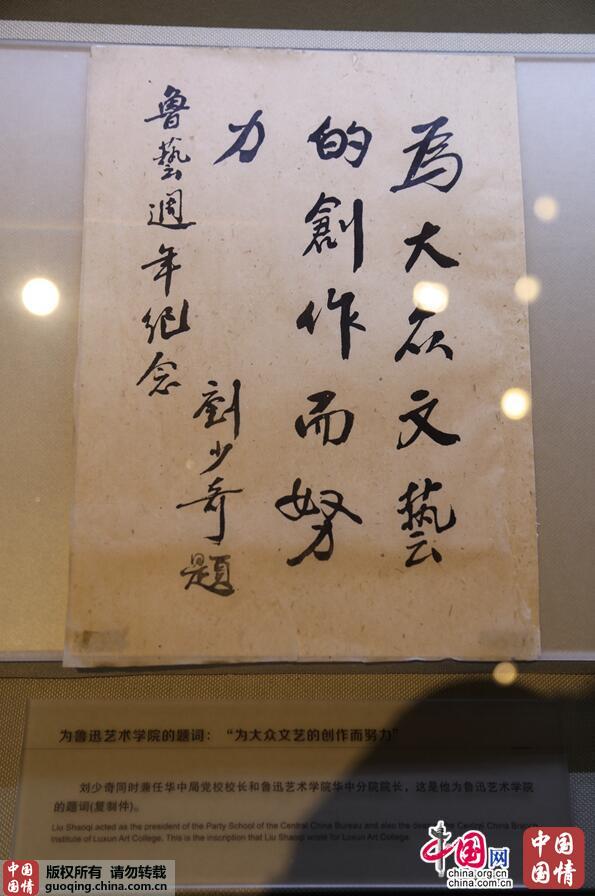 為大众文藝
的創作而努
力
魯藝週年纪念
劉少奇題
为鲁迅艺术学院的题词：“为大众文艺的创作而努力”
刘少奇同时兼任华中局党校校长和鲁迅艺术学院华中分院院长，这是他为鲁迅艺术学院
的题词(复制件)。
Liu Shaoqi acted as the president of the Party School of the Central China Bureau and also the dean of the Central China Branch
Institute of Luxun Art College. This is the inscription that Liu Shaoqi wrote for Luxun Art College.
中国
国情
版权所有 请勿转载
guoqing.china.com.cn
中国网
china.org.cn
china.com.cn
中国
国情